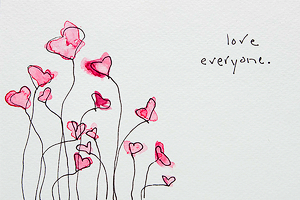 love
everyone.